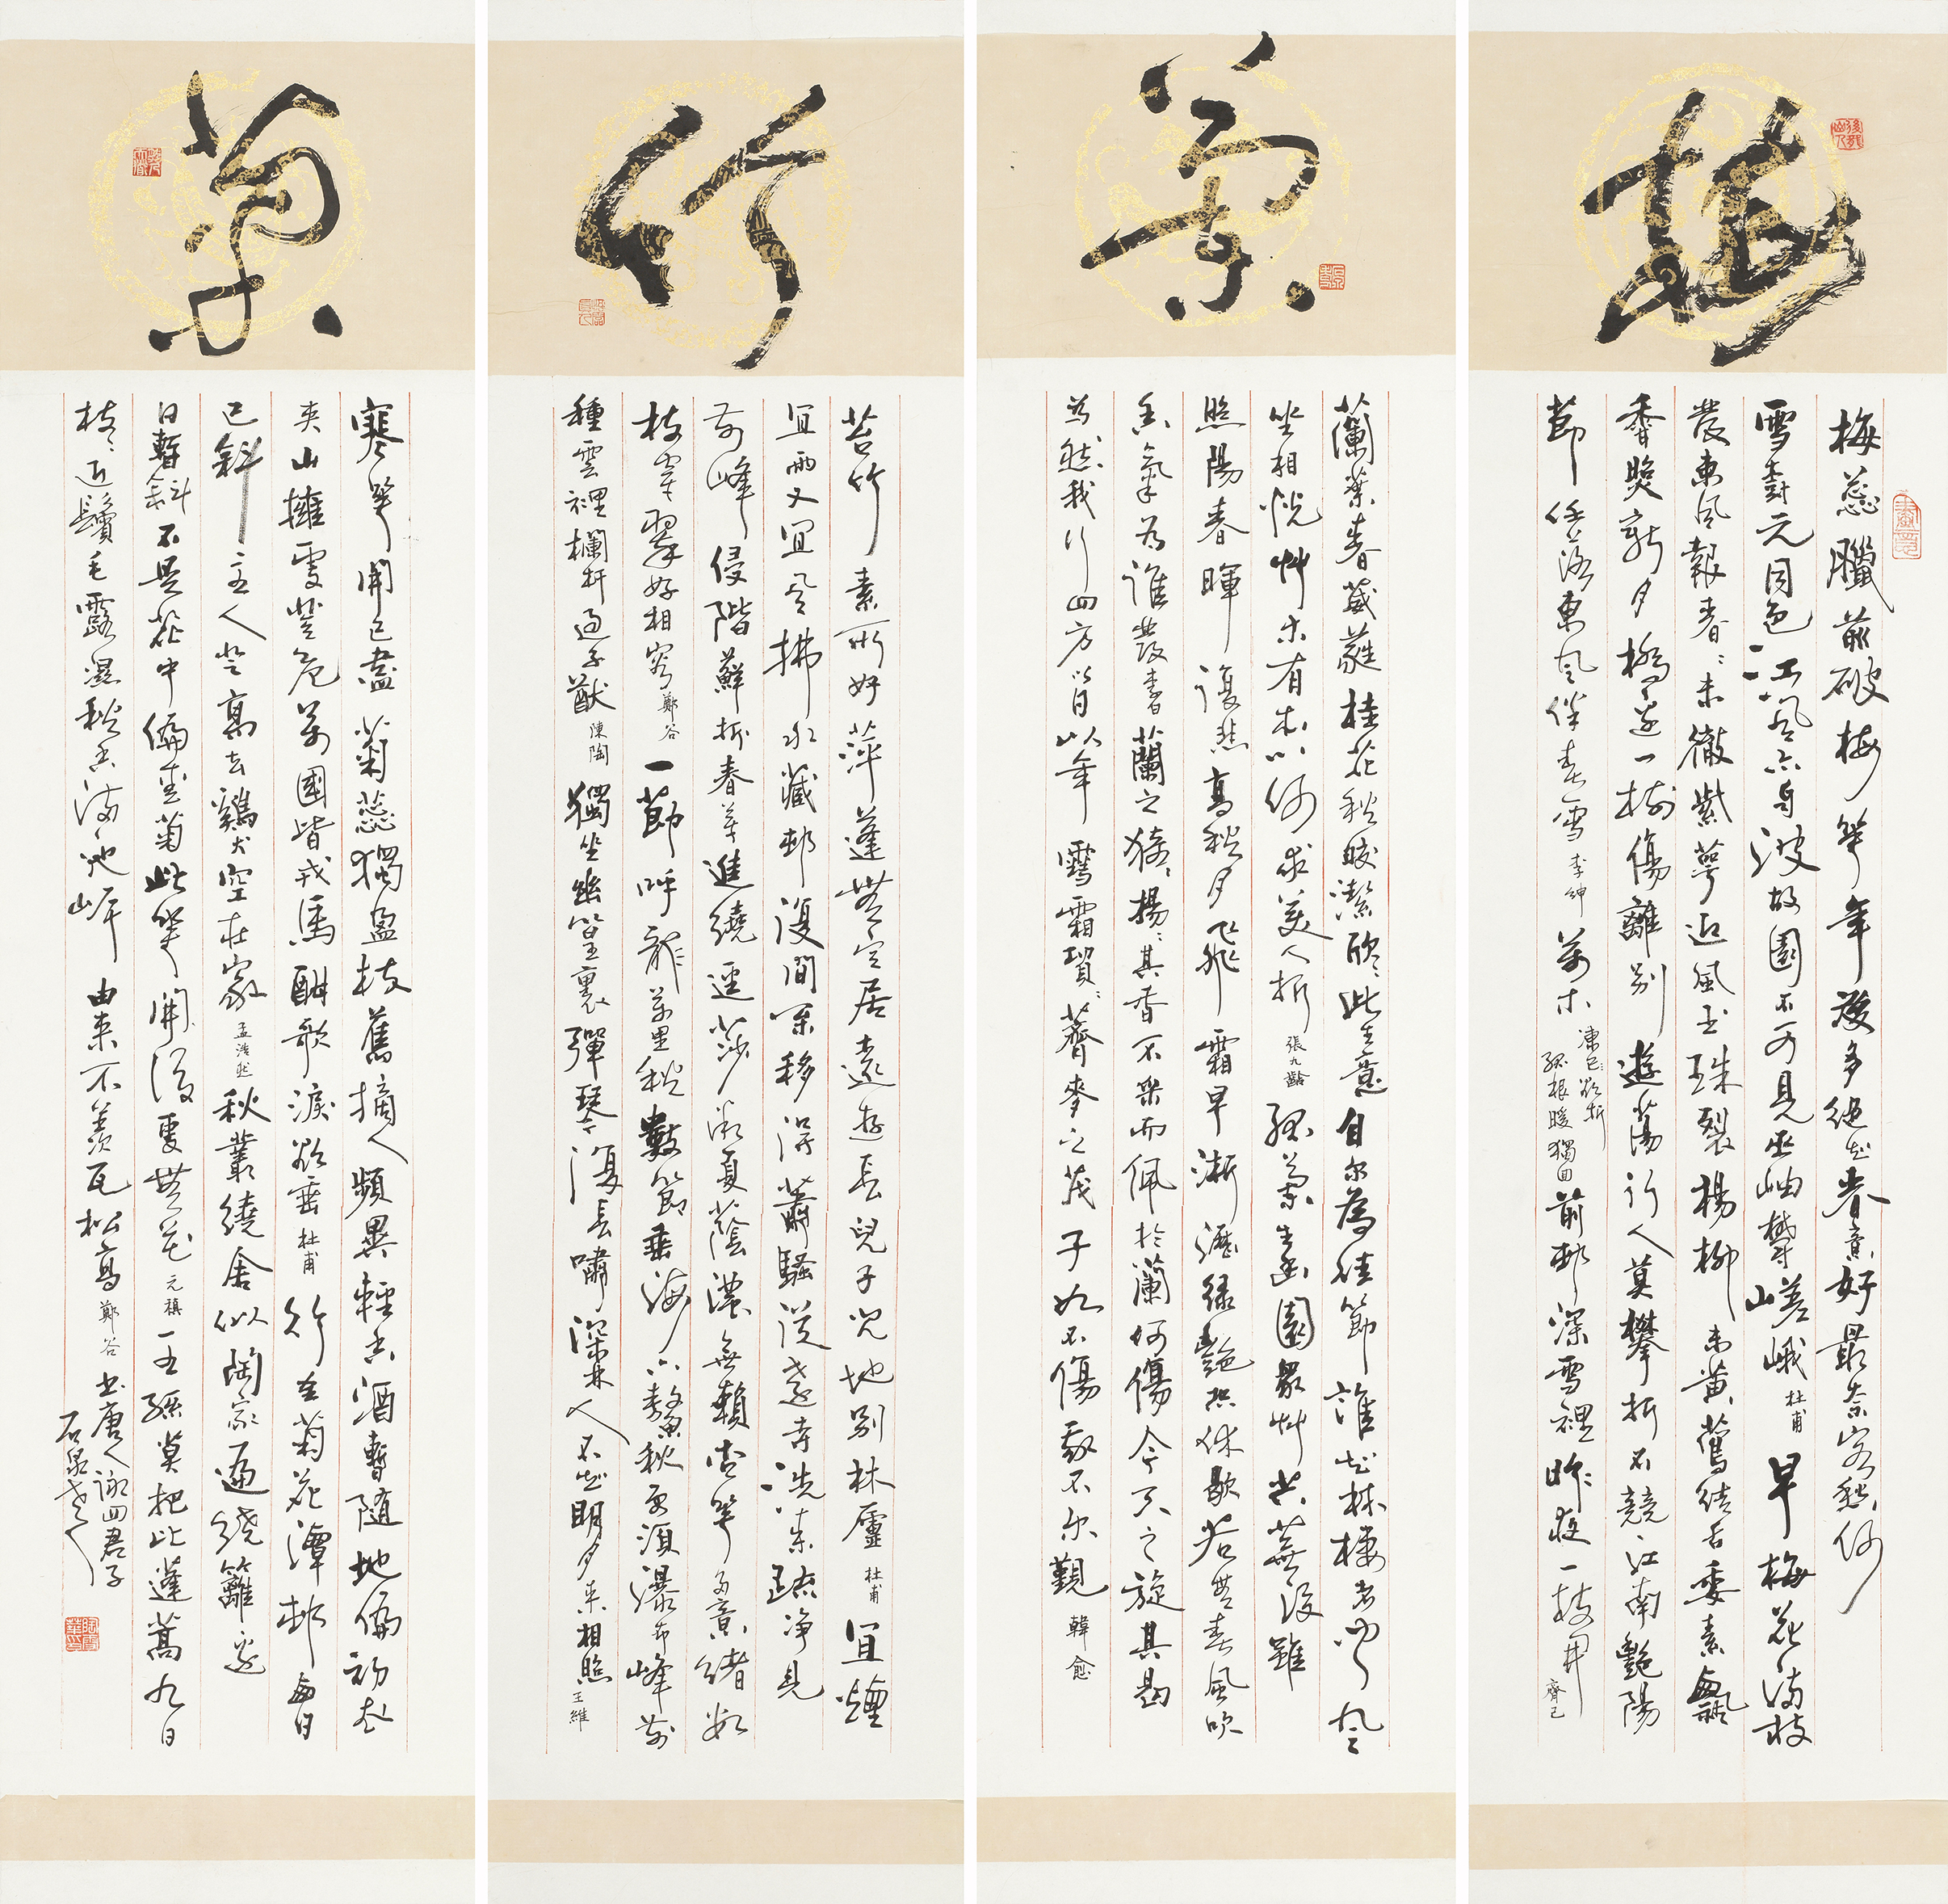 梅
梅蕊臘前破梅花年後多絕知春意好最奈客愁何
雪樹元同色江風亦自波故園不可見巫岫鬱嵯峨 杜甫 早梅花滿枝
發東風報春春未徹紫萼迎風玉珠裂楊柳未黃鶯結舌委素飄
香照新月橋邊一樹傷離別遊蕩行人莫攀折不競江南艷陽
節任落東風伴春雪 李紳 萬木凍欲折孤根暖獨回前村深雪裡昨夜一枝開 齊己
蘭
蘭葉春葳蕤桂花秋皎潔欣欣此生意自尔為佳節誰知林棲者聞風
坐相悅艸木有本心何求美人折 張九齡 孤蘭生幽園眾艸共蕪沒雖
照陽春暉復悲高秋月飛霜早淅瀝綠艷恐休歇若無春風吹
香氣為誰發 李白 蘭之猗猗揚揚其香不采而佩於蘭何傷今天之旋其曷
為然我行四方以日以年雪霜貿貿薺麥之茂子如不傷我不尔覯 韓愈
竹
苦竹素所好萍蓬無定居遠遊長兒子幾地別林廬 杜甫 宜煙
宜雨又宜風拂水藏村復間松移得蕭騷從遠寺洗來疏淨見
前峰侵階蘚拆春芽進繞逕莎微夏蔭濃無賴杏花多意緒數
枝穿翠好相容 鄭谷 一節呼龍萬里秋數節垂海六鰲秋更須瀑布峰前
種雲裡欄杆過子猷 陳陶 獨坐幽篁裏彈琴復長嘯深林人不知明月來相照 王維
菊
寒花開已盡菊蕊獨盈枝舊摘人頻異輕香酒暫隨地偏初衣
夾山擁更登危萬國皆戎馬酣歌淚欲垂 杜甫 行至菊花潭村西日
已斜主人登高去雞犬空在家 孟浩然 秋叢繞舍似陶家遍繞籬邊
日暫斜不是花中偏愛菊此花開後更無花 元稹 王孫莫把比蓬蒿九日
枝枝近鬢毛露濕秋香滿池岸由來不羨瓦松高 鄭谷 書唐人詠四君子
石泉老人